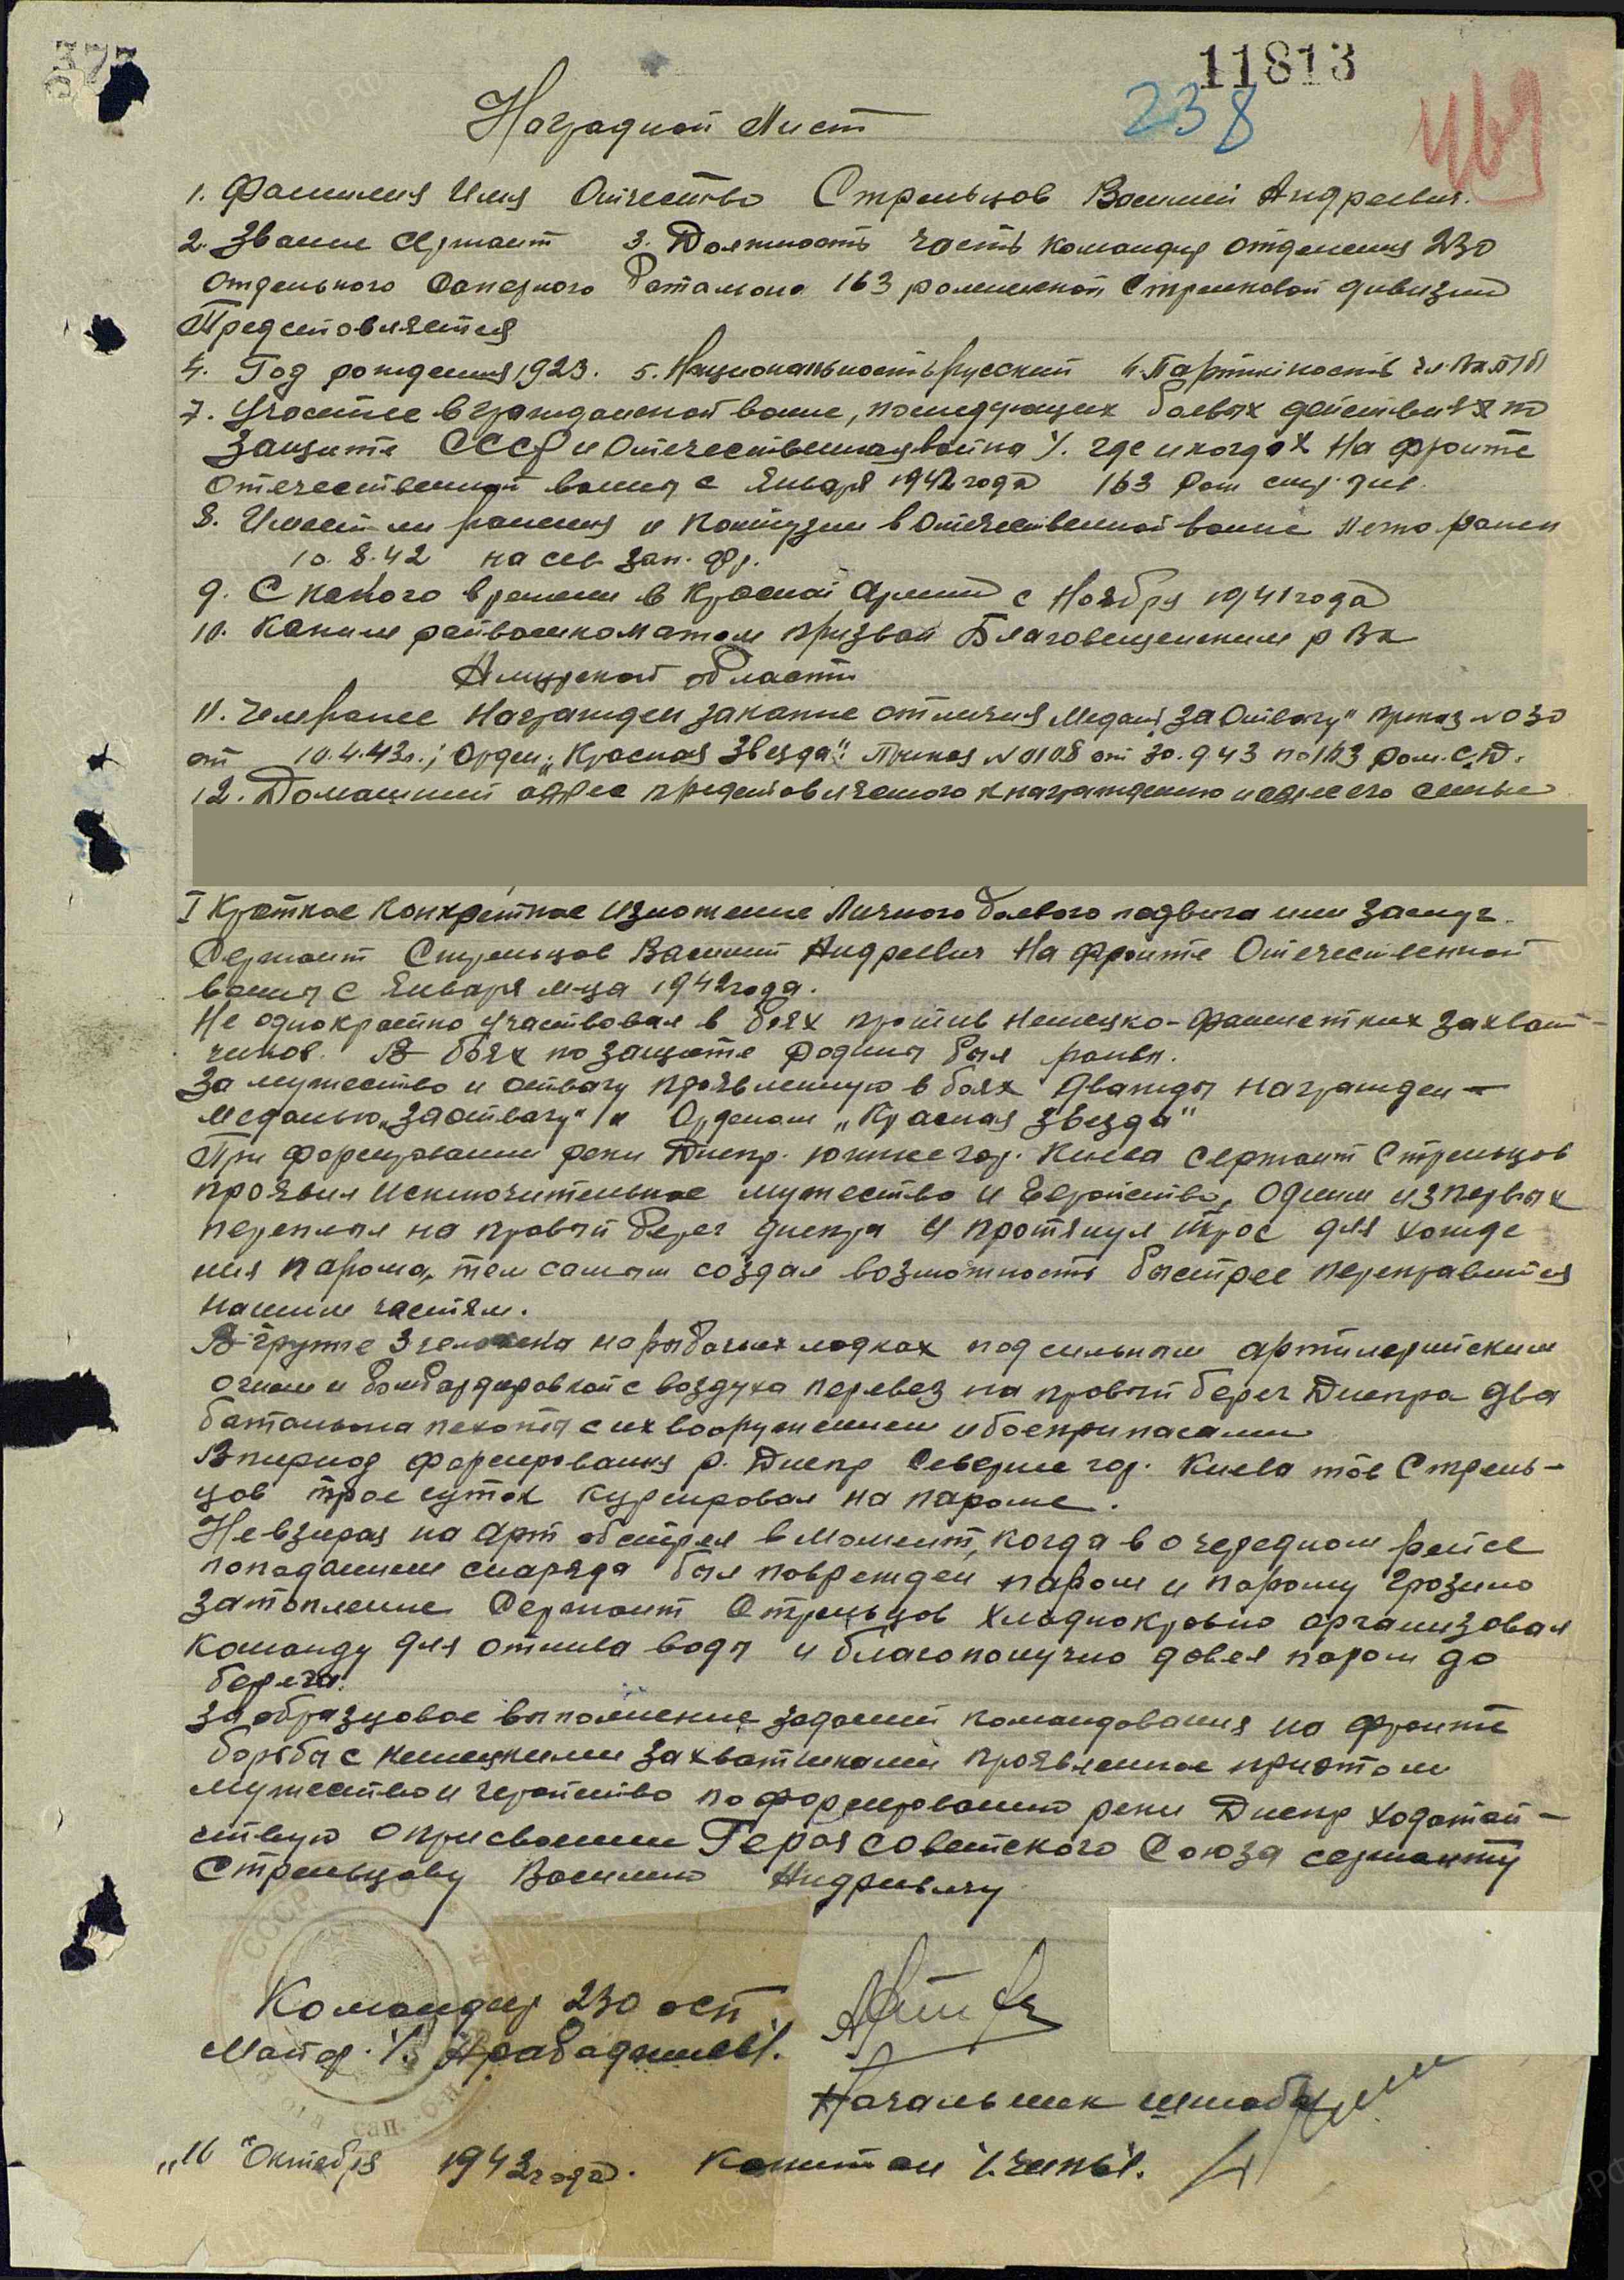 11813
238
Наградной Лист
1. Фамилия Имя Отчество Стрельцов Василий Андреевич.
2. Звание Сержант 3. Должность часть командир отделения 230
отдельного Саперного батальона 163 роменской Стрелковой дивизии
Представляется
4. Год рождения 1923. 5. Национальность русский 6. Партийность чл. ВКП/б/
7. Участие в гражданской войне, последующих боевых действиях по
защите СССР и Отечественная война /. где и когда Х На фронте
Отечественной войны с Января 1942 года 163 Ром стр. див.
8. Имеет ли ранения и контузии в Отечественной войне легко ранен
10. 8. 42 на сев. зап. фр.
9. С какого времени в Красной Армии с Ноября 1941 года
10. Каким райвоенкоматом призван Благовещенским р Вк
Амурской области
11. Чем ранее награжден за какие отличия Медаль „За Отвагу" приказ № 030
от 10.4.43г.; Орден „Красная Звезда". Приказ № 0108 от 30.9.43 по 163 Ром. С.Д.
12. Домашний адрес представляемого к награждению и адрес его семьи
I Краткое конкретное изложение личного боевого подвига или заслуг.
Сержант Стрельцов Василий Андреевич На фронте Отечественной
войны с Января м-ца 1942 года.
Не однократно участвовал в боях против Немецко-фашистких захват-
чиков. В боях по защите Родины был ранен.
За мужество и отвагу проявленную в боях дважды награжден –
медалью „За отвагу" и Орденом „Красная Звезда"
При форсировании реки Днепр. южнее гор. Киева Сержант Стрельцов
проявил исключительное мужество и Геройство, одним из первых
переплыл на правый берег днепра и протянул трос для хожде
ния парома, тем самым создал возможность быстрее переправится
нашим частям.
В группе 3 человека на рыбачьих лодках под сильным артилерийским
огнем и бомбардировкой с воздуха перевез на правый берег Днепра два
батальона пехоты с их вооружением и боеприпасами
В период форсирования р. Днепр Севернее гор. Киева тов Стрель-
цов трое суток курсировал на пароме.
Не взирая на арт обстрел в момент, когда в очередном рейсе
попаданием снаряда был поврежден паром и парому грозило
затопление Сержант Стрельцов хладнокровно организовал
команду для отлива воды и благополучно довел паром до
берега.
За образцовое выполнение заданий командования на фронте
борьбы с немецкими захватчиками проявленное при этом
мужество и геройство по форсированию реки Днепр ходатай-
ствую о присвоении Героя Советского Союза сержанту
Стрельцову Василию Андреевичу
Командир 230 осп
Майор. /. Арабаджиев/.
Начальник штаба
„16" Октября 1943 года. Капитан